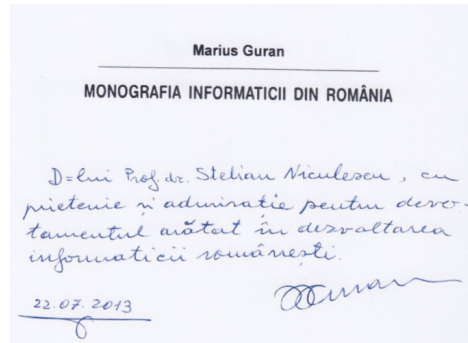 Marius Guran
MONOGRAFIA INFORMATICII DIN ROMÂNIA
D=lui Prof. dr. Stelian Niculescu, cu
prietenie și admirație pentru devo-
tamentul arătat în dezvoltarea
informaticii românești.
22.07.2013